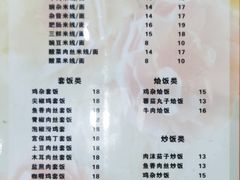 豌杂米线/面 14 17
杂酱米线/面 14 17
肥肠米线/面 16 19
三鲜米线/面 14 17
豌豆米线/面
酸菜肉丝米线/面
酸菜米线/面
套饭类
鸡杂套饭 18
尖椒鸡套饭 18
鱼香肉丝套饭 18
青椒肉丝套饭 18
泡椒鸡套饭
宫保鸡丁套饭 18
土豆肉丝套饭 18
木耳肉丝套饭 18
盐煎肉套饭 18
咖喱鸡套饭 18
烩饭类
鸡杂烩饭 15
番茄丸子烩饭 16
牛肉烩饭 16
炒饭类
肉沫茄子炒饭 13
鱼香肉丝炒饭 13
鸡杂炒饭 15